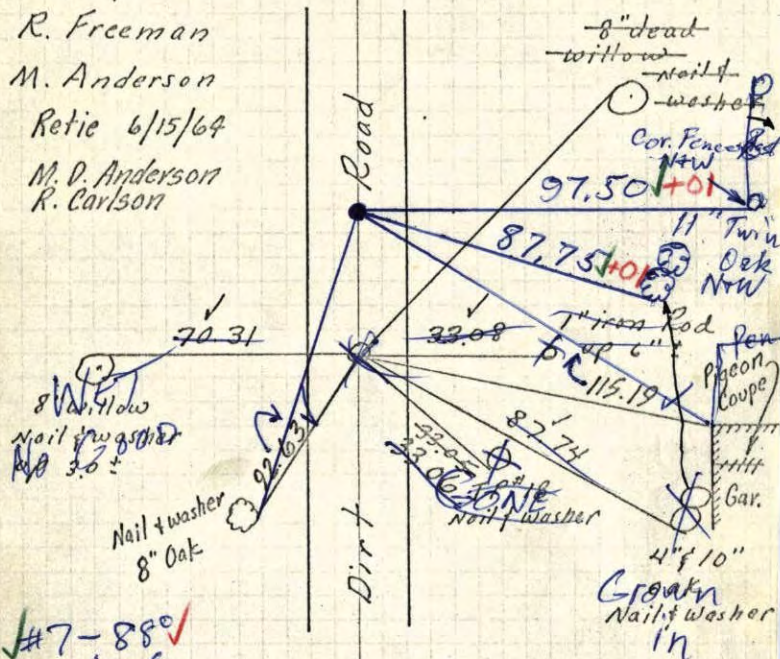 R. Freeman
M. Anderson
Retie 6/15/64
M. D. Anderson
R. Carlson
8" dead
willow
Nail &
washer
Road
Cor. Fence
N+W
97.50 √ +01
11" Twin
Oak
N+W
87.75 √ +01
70.31
33.08
1" iron Rod
up 6" ±
115.19
Pen
Pigeon
Coupe
Gar.
8" Willow
Nail & washer
up 3.0 ±
No Good
92.63
87.74
33.06
GONE
Nail & washer
Nail & washer
8" Oak
Dirt
4" & 10"
Oak
Nail & washer
Grown
in
√ #7 - 88° √